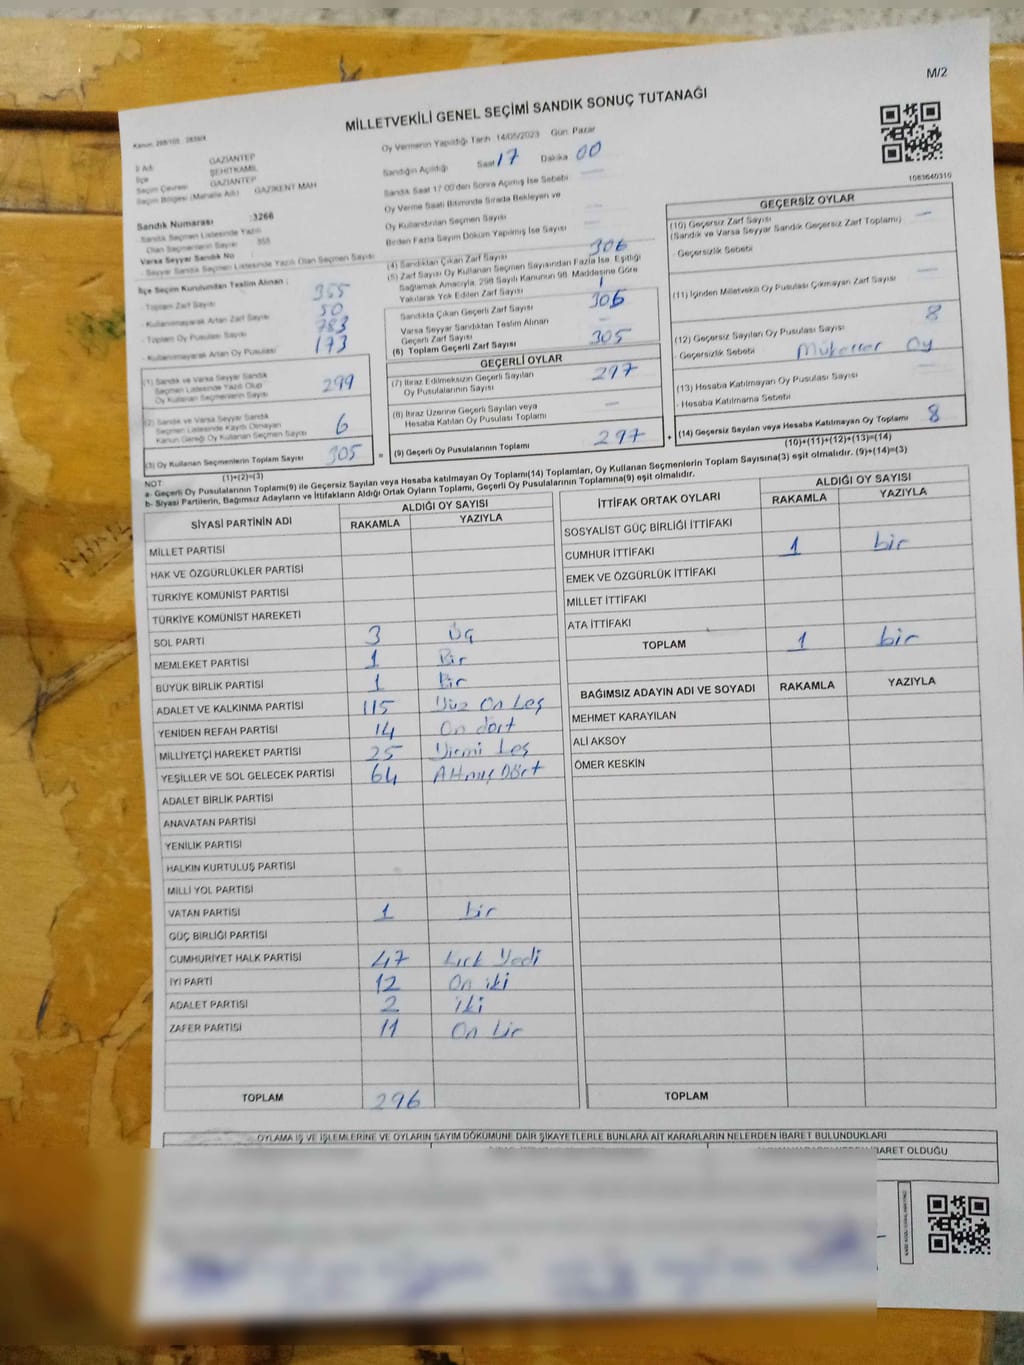 M/2
MİLLETVEKİLİ GENEL SEÇİMİ SANDIK SONUÇ TUTANAĞI
İl Adı GAZİANTEP
İlçe ŞEHİTKAMİL
Seçim Çevresi GAZİANTEP
Seçim Bölgesi (Mahalle Adı) GAZİKENT MAH
Sandık Numarası :3266
Sandık Seçmen Listesinde Yazılı
Olan Seçmenlerin Sayısı 355
Varsa Seyyar Sandık No
- Seyyar Sandık Seçmen Listesinde Yazılı Olan Seçmen Sayısı
İlçe Seçim Kurulundan Teslim Alınan :
- Toplam Zarf Sayısı 355
- Kullanılmayarak Artan Zarf Sayısı 50
- Toplam Oy Pusulası Sayısı 783
- Kullanılmayarak Artan Oy Pusulası 173
(1) Sandık ve Varsa Seyyar Sandık
Seçmen Listesinde Yazılı Olup
Oy Kullanan Seçmenlerin Sayısı 299
(2) Sandık ve Varsa Seyyar Sandık
Seçmen Listesinde Kayıtlı Olmayan
Kanun Gereği Oy Kullanan Seçmen Sayısı 6
(3) Oy Kullanan Seçmenlerin Toplam Sayısı 305
(1)+(2)=(3)
Oy Vermenin Yapıldığı Tarih 14/05/2023 Gün: Pazar
Sandığın Açıldığı Saat 17 Dakika 00
Sandık Saat 17 00'den Sonra Açılmış İse Sebebi
Oy Verme Saati Bitiminde Sırada Bekleyen ve
Oy Kullandırılan Seçmen Sayısı
Birden Fazla Sayım Döküm Yapılmış İse Sayısı
(4) Sandıktan Çıkan Zarf Sayısı 306
(5) Zarf Sayısı Oy Kullanan Seçmen Sayısından Fazla İse, Eşitliği
Sağlamak Amacıyla, 298 Sayılı Kanunun 98. Maddesine Göre
Yakılarak Yok Edilen Zarf Sayısı 1
Sandıkta Çıkan Geçerli Zarf Sayısı 306
Varsa Seyyar Sandıktan Teslim Alınan
Geçerli Zarf Sayısı
(6) Toplam Geçerli Zarf Sayısı 305
GEÇERLİ OYLAR
(7) İtiraz Edilmeksizin Geçerli Sayılan
Oy Pusulalarının Sayısı 297
(8) İtiraz Üzerine Geçerli Sayılan veya
Hesaba Katılan Oy Pusulası Toplamı
(9) Geçerli Oy Pusulalarının Toplamı 297
1083640310
GEÇERSİZ OYLAR
(10) Geçersiz Zarf Sayısı
(Sandık ve Varsa Seyyar Sandık Geçersiz Zarf Toplamı)
- Geçersizlik Sebebi
(11) İçinden Milletvekili Oy Pusulası Çıkmayan Zarf Sayısı
(12) Geçersiz Sayılan Oy Pusulası Sayısı 8
- Geçersizlik Sebebi Mükerrer Oy
(13) Hesaba Katılmayan Oy Pusulası Sayısı
- Hesaba Katılmama Sebebi
(14) Geçersiz Sayılan veya Hesaba Katılmayan Oy Toplamı 8
(10)+(11)+(12)+(13)=(14)
NOT:
a- Geçerli Oy Pusulalarının Toplamı(9) ile Geçersiz Sayılan veya Hesaba katılmayan Oy Toplamı(14) Toplamları, Oy Kullanan Seçmenlerin Toplam Sayısına(3) eşit olmalıdır. (9)+(14)=(3)
b- Siyasi Partilerin, Bağımsız Adayların ve İttifakların Aldığı Ortak Oyların Toplamı, Geçerli Oy Pusulalarının Toplamına(9) eşit olmalıdır.
SİYASİ PARTİNİN ADI ALDIĞI OY SAYISI
RAKAMLA YAZIYLA
MİLLET PARTİSİ
HAK VE ÖZGÜRLÜKLER PARTİSİ
TÜRKİYE KOMÜNİST PARTİSİ
TÜRKİYE KOMÜNİST HAREKETİ
SOL PARTİ 3 Üç
MEMLEKET PARTİSİ 1 Bir
BÜYÜK BİRLİK PARTİSİ 1 Bir
ADALET VE KALKINMA PARTİSİ 115 Yüz On beş
YENİDEN REFAH PARTİSİ 14 On dört
MİLLİYETÇİ HAREKET PARTİSİ 25 Yirmi beş
YEŞİLLER VE SOL GELECEK PARTİSİ 64 Altmış Dört
ADALET BİRLİK PARTİSİ
ANAVATAN PARTİSİ
YENİLİK PARTİSİ
HALKIN KURTULUŞ PARTİSİ
MİLLİ YOL PARTİSİ
VATAN PARTİSİ 1 bir
GÜÇ BİRLİĞİ PARTİSİ
CUMHURİYET HALK PARTİSİ 47 kırk Yedi
İYİ PARTİ 12 On iki
ADALET PARTİSİ 2 iki
ZAFER PARTİSİ 11 On bir
TOPLAM 296
İTTİFAK ORTAK OYLARI ALDIĞI OY SAYISI
RAKAMLA YAZIYLA
SOSYALİST GÜÇ BİRLİĞİ İTTİFAKI
CUMHUR İTTİFAKI 1 bir
EMEK VE ÖZGÜRLÜK İTTİFAKI
MİLLET İTTİFAKI
ATA İTTİFAKI
TOPLAM 1 bir
BAĞIMSIZ ADAYIN ADI VE SOYADI RAKAMLA YAZIYLA
MEHMET KARAYILAN
ALİ AKSOY
ÖMER KESKİN
TOPLAM
OYLAMA İŞ VE İŞLEMLERİNE VE OYLARIN SAYIM DÖKÜMÜNE DAİR ŞİKAYETLERLE BUNLARA AİT KARARLARIN NELERDEN İBARET BULUNDUKLARI
İBARET OLDUĞU